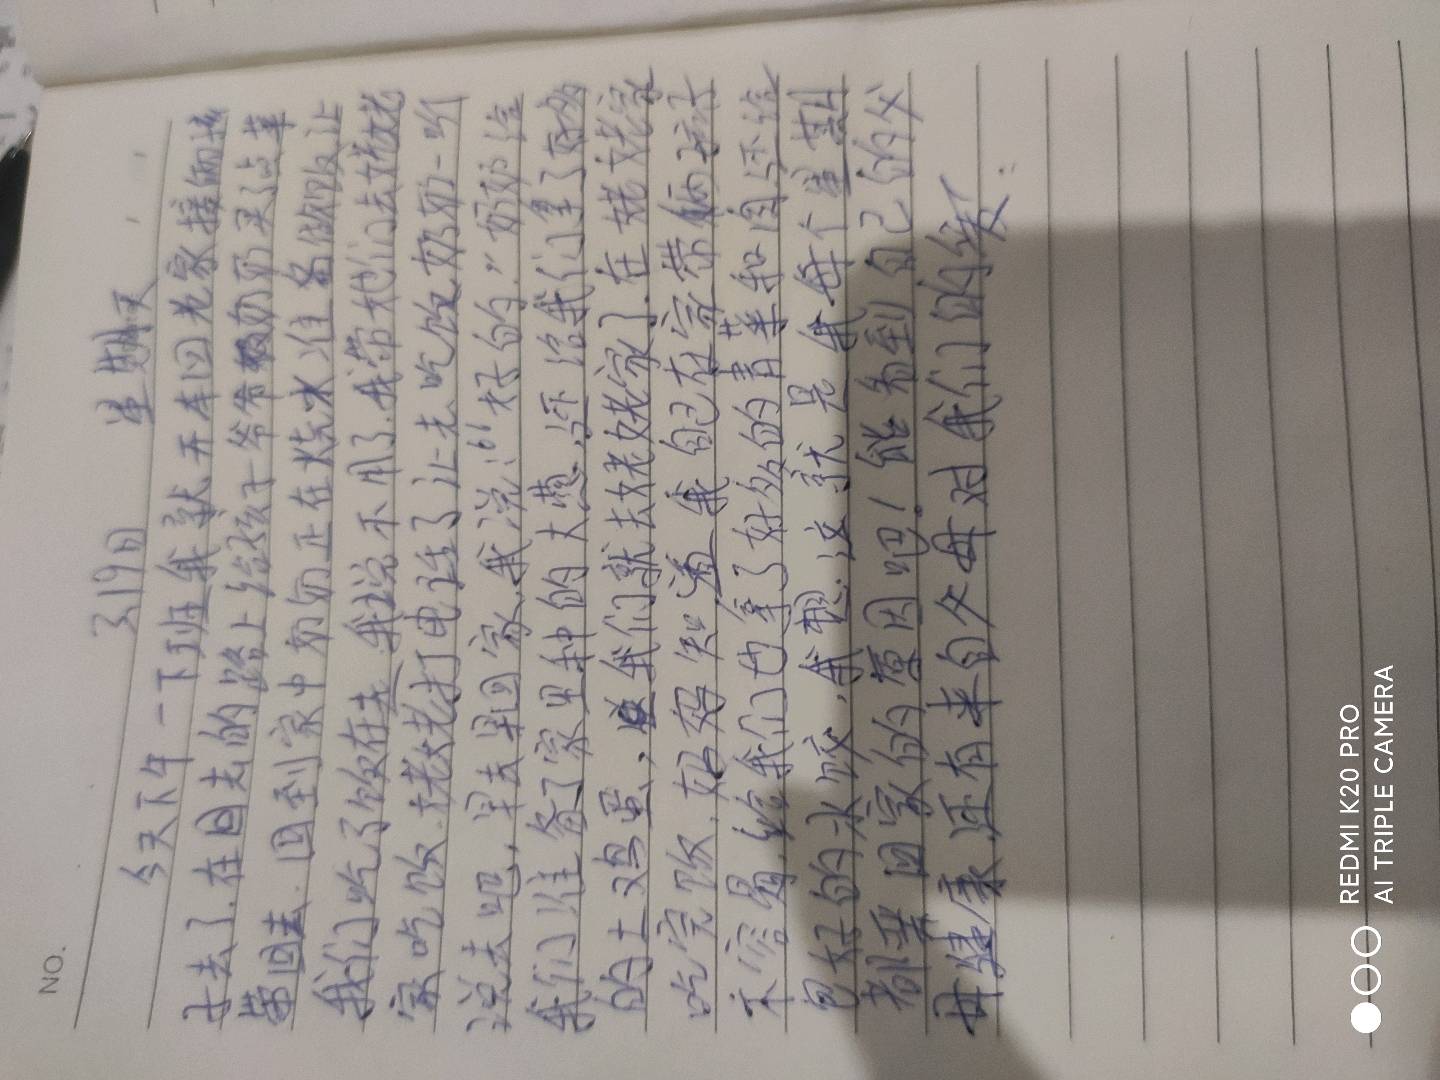 NO.
3.19日 星期天
今天下午一下班我就开车回老家接俩孩
子去了.在回去的路上给孩子爷爷奶奶买了点菜
带回去.回到家中奶奶正在烧水准备做饭让
我们吃了饭在走.我说不用了.我带他们去姥姥
家吃饭.姥姥打电话了让去吃饭奶奶一听
说去吧,早去早回家.我说:"好的."奶奶给
我们准备了家里种的大葱.还给我们拿了好多
的土鸡蛋,我们就去姥姥家了.在姥姥家
吃完饭.妈妈知道我自己在家带俩孩子
不容易.给我们也拿了好多的青菜和肉还给
包好的水饺.我想.这就是我每个星期
都要回家的原因吧!能看到自己的父
母健康.还有来自父母对我们的爱.
REDMI K20 PRO
AI TRIPLE CAMERA